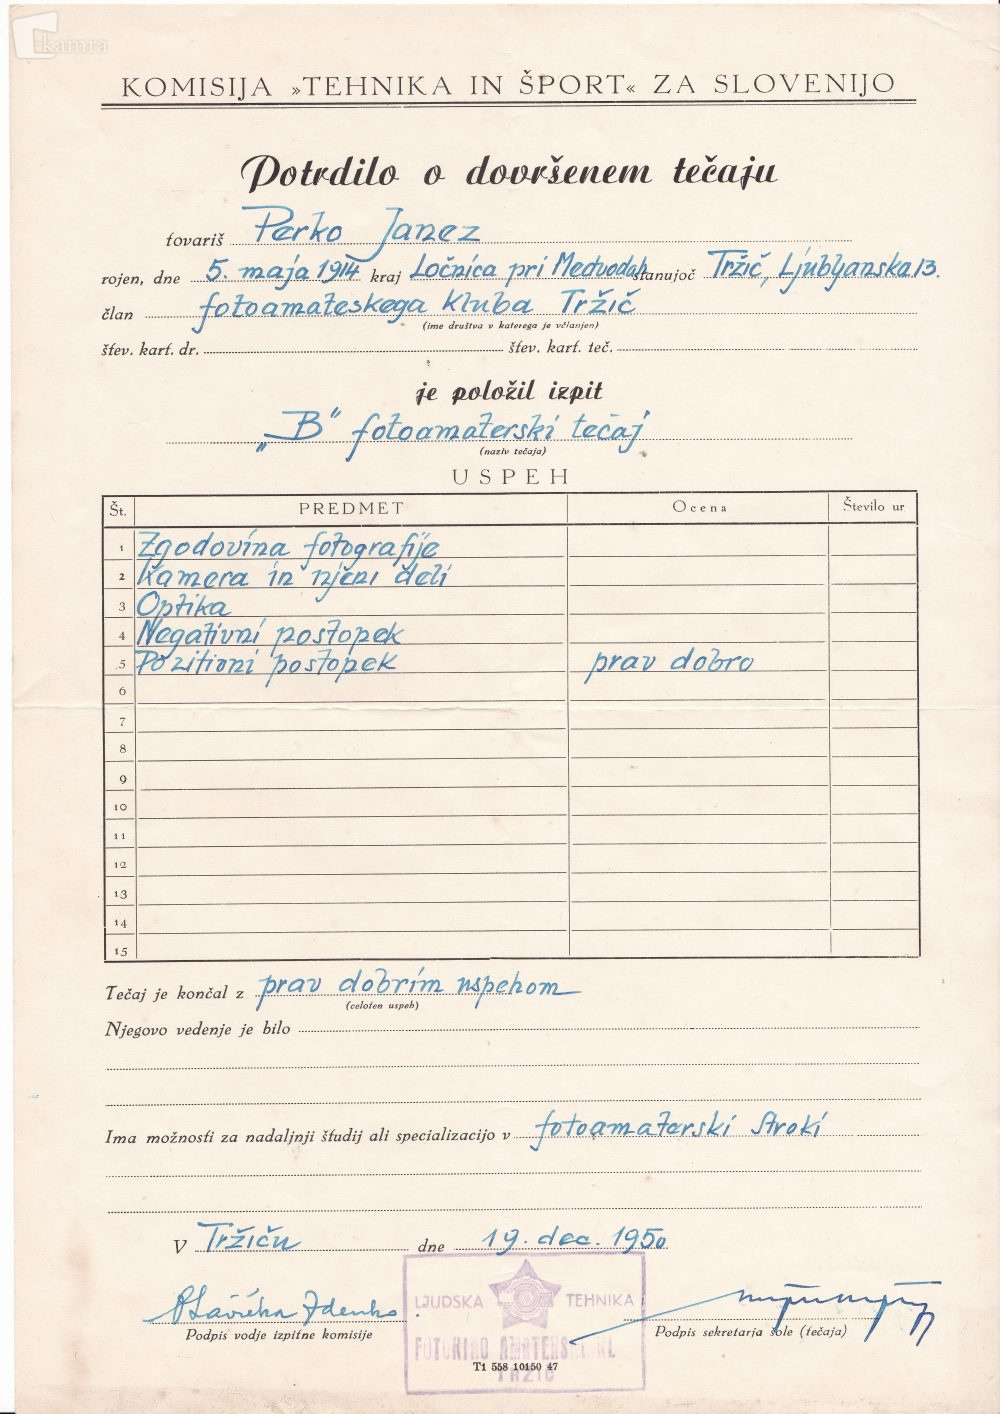 ekamra
KOMISIJA »TEHNIKA IN ŠPORT« ZA SLOVENIJO
Potrdilo o dovršenem tečaju
tovariš Perko Janez
rojen, dne 5. maja 1914 kraj Ločnica pri Medvodah stanujoč Tržič, Ljubljanska 13.
član fotoamateskega kluba Tržič
(ime društva v katerega je včlanjen)
štev. kart. dr. štev. kart. teč.
je položil izpit
„B" fotoamaterski tečaj
(naziv tečaja)
USPEH
Št. PREDMET Ocena Število ur
1 Zgodovina fotografije
2 Kamera in njeni deli
3 Optika
4 Negativni postopek
5 Pozitivni postopek prav dobro
6
7
8
9
10
11
12
13
14
15
Tečaj je končal z prav dobrim uspehom
(celoten uspeh)
Njegovo vedenje je bilo
Ima možnosti za nadaljnji študij ali specializacijo v fotoamaterski stroki
V Tržiču dne 19. dec. 1950
LJUDSKA TEHNIKA
Zdenko
Podpis vodje izpitne komisije Podpis sekretarja šole (tečaja)
FOTOKINO AMATERSKI KL
T1 558 10150 47
TRŽIČ